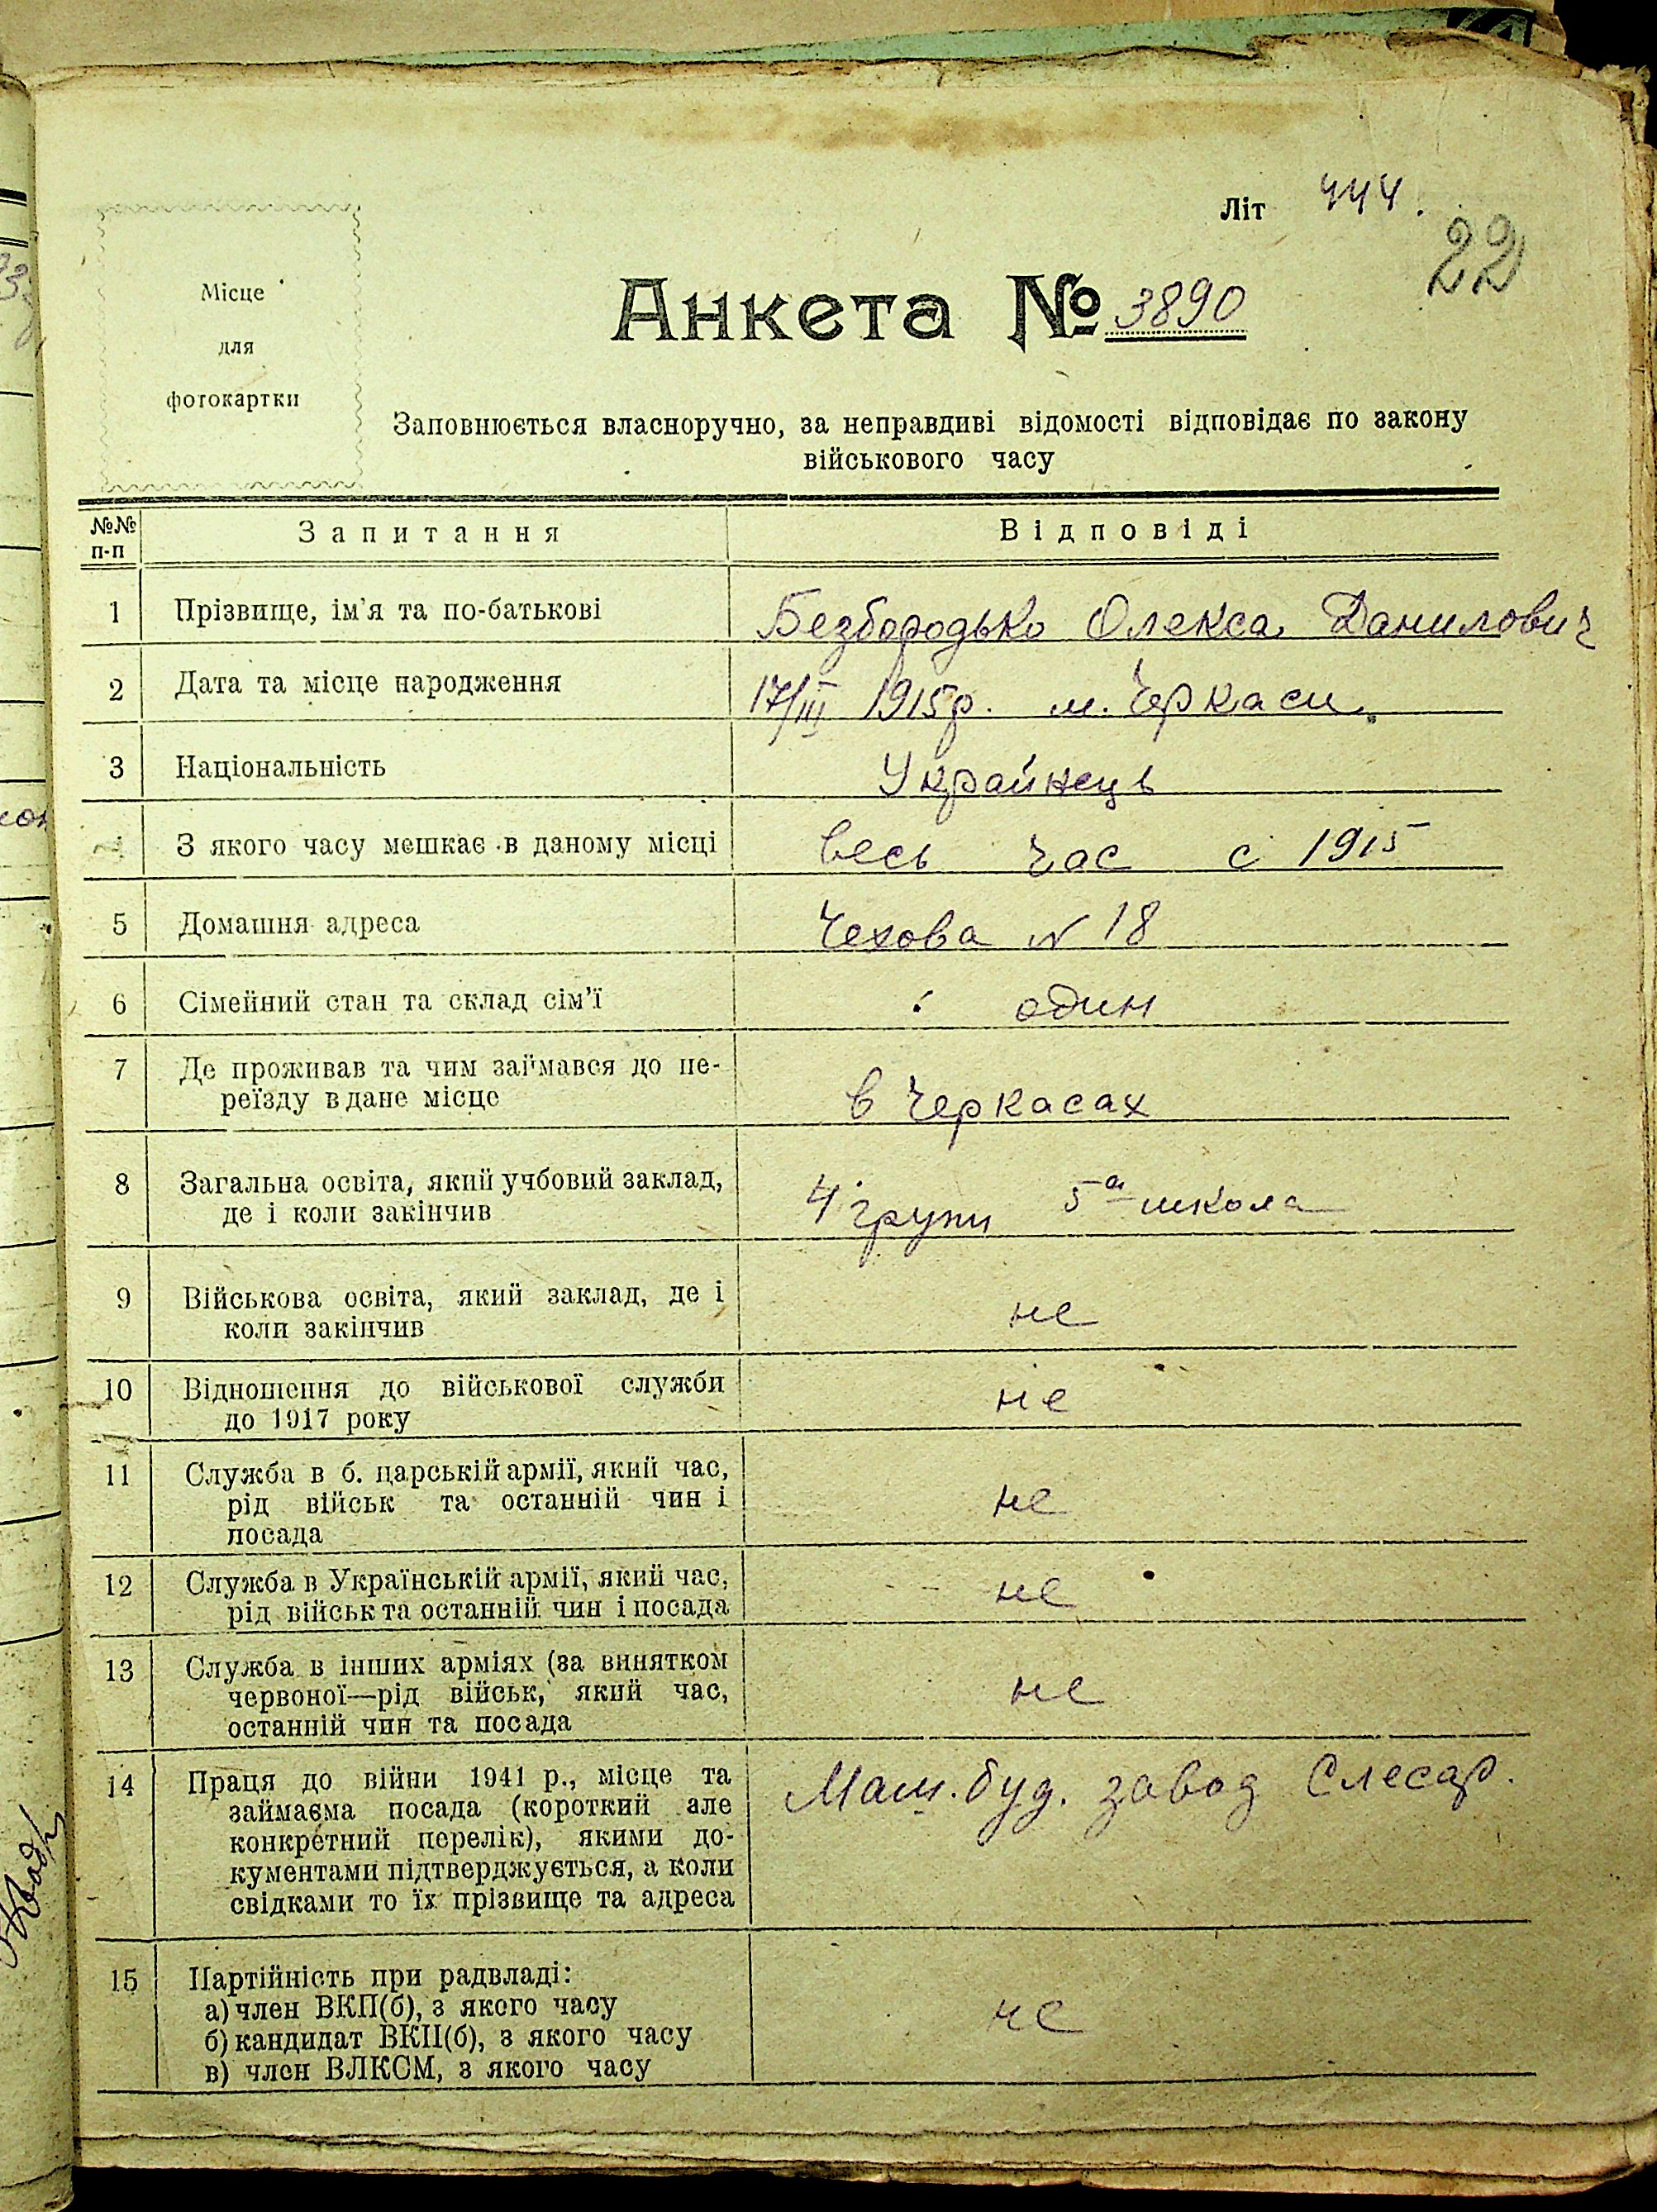 Літ 444.
22
Місце
для
фотокартки
Анкета № 3890
Заповнюється власноручно, за неправдиві відомості відповідає по закону
військового часу
№№ п-п Запитання Відповіді
1 Прізвище, ім'я та по-батькові Безбородько Олекса Данилович
2 Дата та місце народження 17/III 1915р. м. Черкаси
3 Національність Українець
З якого часу мешкає в даному місці весь час с 1915
5 Домашня адреса Чехова N 18
6 Сімейний стан та склад сім'ї один
7 Де проживав та чим займався до пе-
реїзду в дане місце в Черкасах
8 Загальна освіта, який учбовий заклад,
де і коли закінчив 4 групи 5а школа
9 Військова освіта, який заклад, де і
коли закінчив не
10 Відношення до військової служби
до 1917 року не
11 Служба в б. царській армії, який час,
рід військ та останній чин і
посада не
12 Служба в Українській армії, який час,
рід військ та останній чин і посада не
13 Служба в інших арміях (за винятком
червоної—рід військ, який час,
останній чин та посада не
14 Праця до війни 1941 р., місце та Маш.буд. завод Слесар.
займаєма посада (короткий але
конкретний перелік), якими до-
кументами підтверджується, а коли
свідками то їх прізвище та адреса
15 Партійність при радвладі:
а) член ВКП(б), з якого часу
б) кандидат ВКП(б), з якого часу не
в) член ВЛКСМ, з якого часу